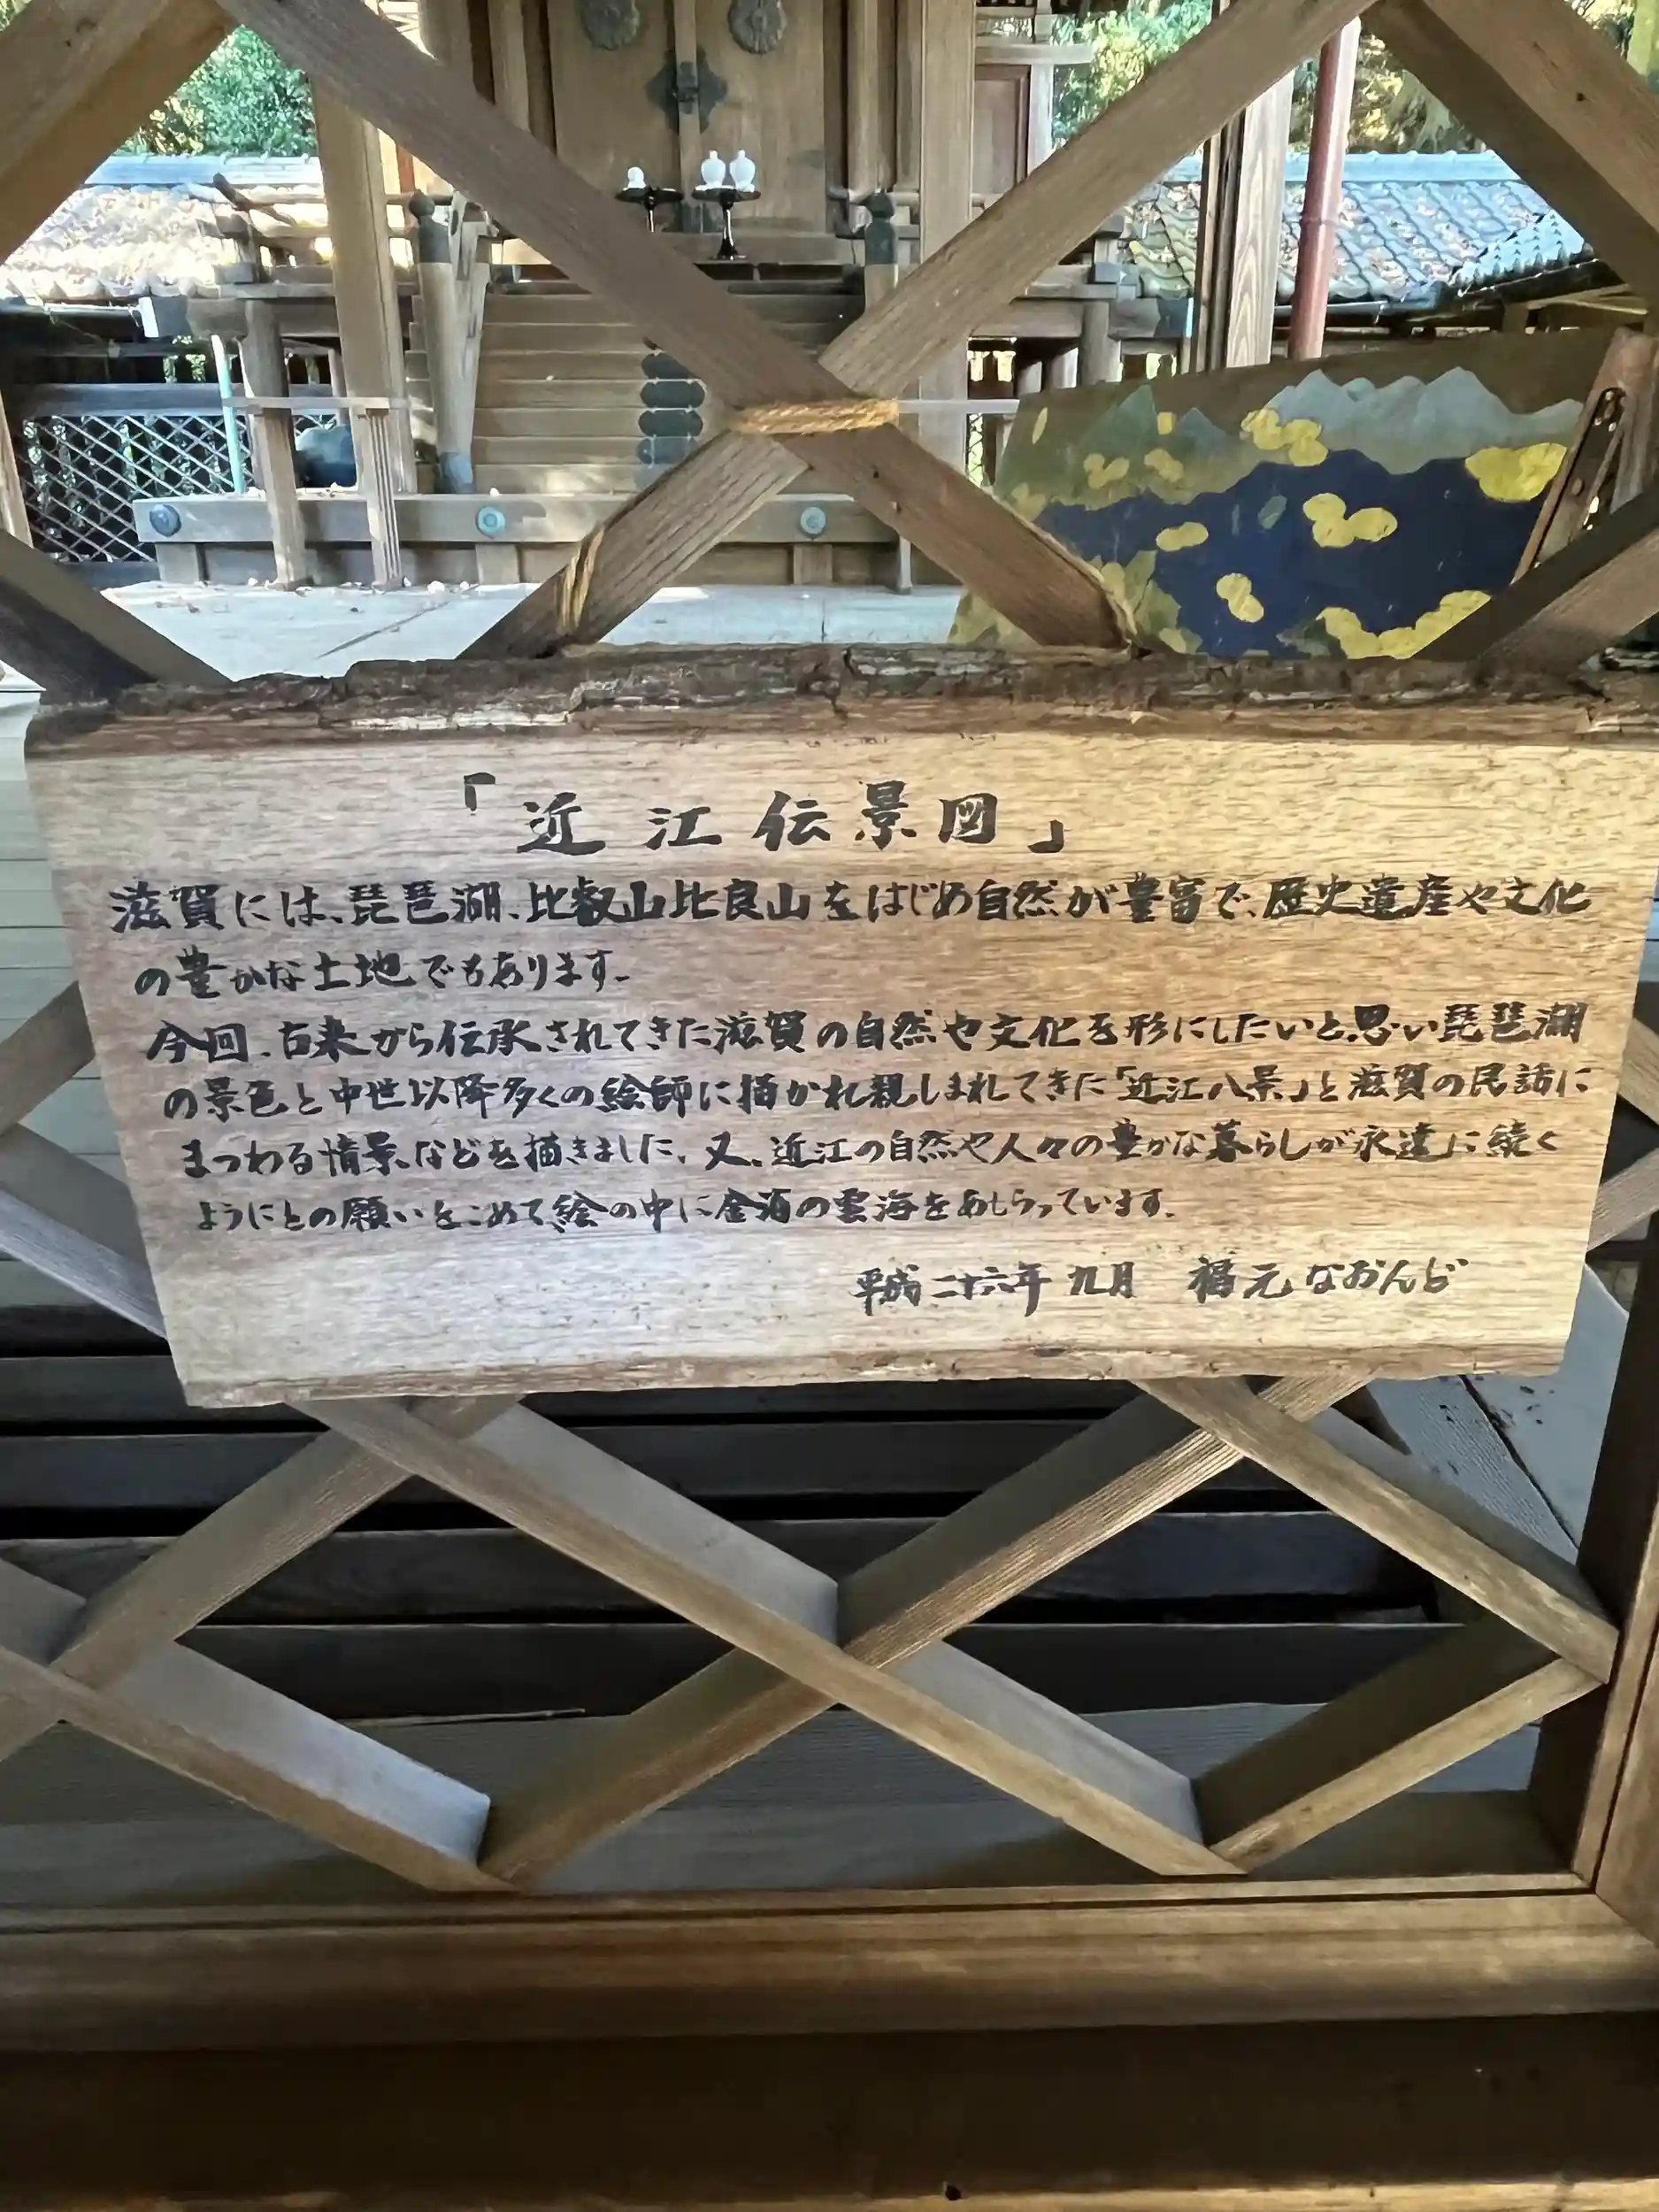 「近江伝景図」
滋賀には、琵琶湖、比叡山比良山をはじめ自然が豊富で、歴史遺産や文化
の豊かな土地でもあります。
今回、古来から伝承されてきた滋賀の自然や文化を形にしたいと思い琵琶湖
の景色と中世以降多くの絵師に描かれ親しまれてきた「近江八景」と滋賀の民話に
まつわる情景などを描きました。又、近江の自然や人々の豊かな暮らしが永遠に続く
ようにとの願いをこめて、絵の中に金箔の雲海をあしらっています。
平成二十六年 九月 福元なおんど